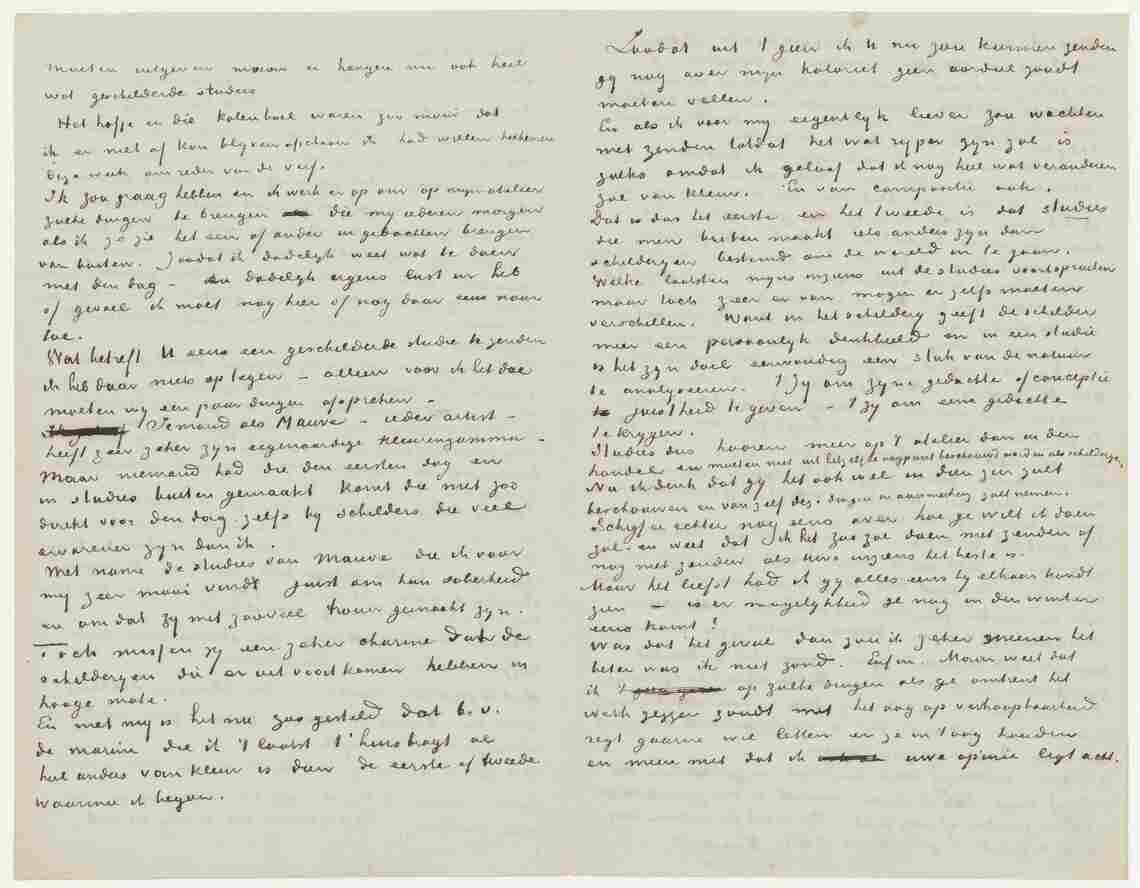 moeten uitgeven maar er hangen nu ook heel
wat geschilderde studies
Het hofje en die kolenboel waren zoo mooi dat
ik er niet af kon blijven ofschoon ik had willen
deze week om reden van de verf.
Ik zou graag hebben en ik werk er op om op mijn atelier
zulke dingen te brengen die my iederen morgen
als ik ze zie het een of ander in gedachten brengen
van buiten. Zoodat ik dadelyk weet wat te doen
met den dag – en dadelyk ergens lust in heb
of gevoel ik moet nog hier of nog daar eens naar
toe.
Wat betreft U eens een geschilderde studie te zenden
ik heb daar niets op tegen – alleen voor ik het doe
moeten wy een paar dingen afspreken –
Iemand als Mauve – ieder artist –
heeft zeer zeker zyn eigenaardige kleurengamma –
Maar niemand had die den eersten dag en
in studies buiten gemaakt komt die niet zoo
direkt voor den dag. zelfs by schilders die veel
ervarener zyn dan ik.
Met name de studies van Mauve die ik voor
my zeer mooi vindt juist om hun soberheid
en omdat zy met zooveel trouw gemaakt zyn.
Toch missen zy een zeker charme dat de
schilderyen die er uit voortkomen hebben in
hooge mate.
En met my is het nu zoo gesteld dat b.v.
de marine die ik 't laatst t'huisbragt al
heel anders van kleur is dan de eerste of tweede
waarmee ik begon.
Zoodat uit 't geen ik U nu zou kunnen zenden
gy nog over myn koloriet geen oordeel zoudt
moeten vellen.
En als ik voor my eigentlyk liever zou wachten
met zenden totdat het wat ryper zyn zal is
zulks omdat ik geloof dat ik nog heel wat veranderen
zal van kleur. En van compositie ook.
Dat is dus het eerste en het tweede is dat studies
die men buiten maakt iets anders zyn dan
schilderyen bestemd om de wereld in te gaan.
Welke laatsten myns inziens uit de studies voortspruiten
maar toch zeer er van mogen er zelfs moeten
verschillen. Want in het schildery geeft de schilder
meer een persoonlyk denkbeeld en in een studie
is het zyn doel eenvoudig een stuk van de natuur
te analyseeren. 't Zy om zyne gedachte of conceptie
juistheid te geven – 't zy om eene gedachte
te krygen.
Studies dus hooren meer op 't atelier dan in den
handel en moeten niet uit hetzelfde oogpunt beschouwd worden als schilderyen.
Nu ik denk dat gy het ook wel in dien zin zult
beschouwen en van zelf des. dingen in aanmerking zult nemen.
Schryf er echter nog eens over hoe ge wilt ik doen
zal. en weet dat ik het zoo zal doen met zenden of
nog niet zenden als uws inziens het beste is.
Maar het liefst had ik gy alles eens by elkaar kondt
zien – is er mogelykheid ge nog in den winter
eens komt!
Was dat het geval dan zou ik zeker meenen het
beter was ik niet zond. Enfin. Maar weet dat
ik 't op zulke dingen als ge omtrent het
werk zeggen zoudt met het oog op verkoopbaarheid
regt gaarne wil letten en ze in 't oog houden
en meen niet dat ik uwe opinie ligt acht.